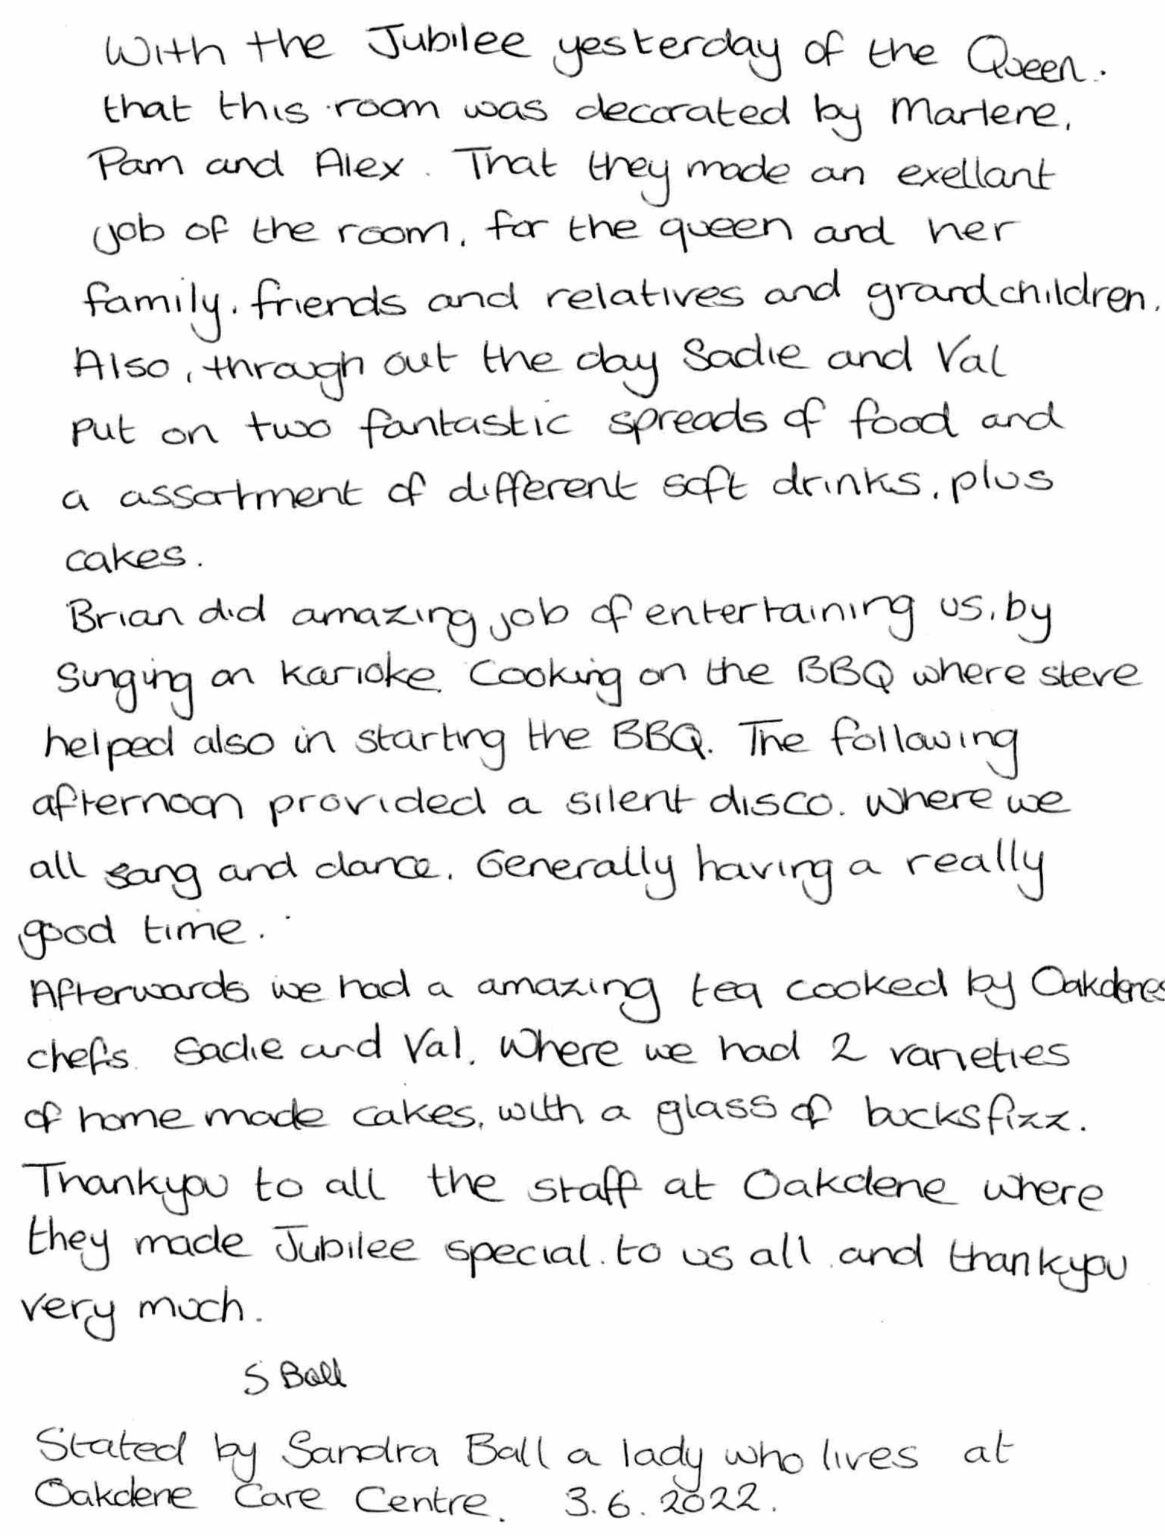 With the Jubilee yesterday of the Queen.
that this room was decorated by Marlene,
Pam and Alex. That they made an exellant
job of the room, for the queen and her
family. friends and relatives and grandchildren.
Also, through out the day Sadie and Val
put on two fantastic spreads of food and
a assortment of different soft drinks, plus
cakes.
Brian did amazing job of entertaining us, by
Singing on karioke. Cooking on the BBQ where steve
helped also in starting the BBQ. The following
afternoon provided a silent disco. where we
all sang and dance. Generally having a really
good time.
Afterwards we had a amazing tea cooked by Oakdenes
chefs. Sadie and Val. Where we had 2 varieties
of home made cakes, with a glass of bucksfizz.
Thankyou to all the staff at Oakdene where
they made Jubilee special. to us all and thankyou
very much.
S Ball
Stated by Sandra Ball a lady who lives at
Oakdene Care Centre. 3.6.2022.